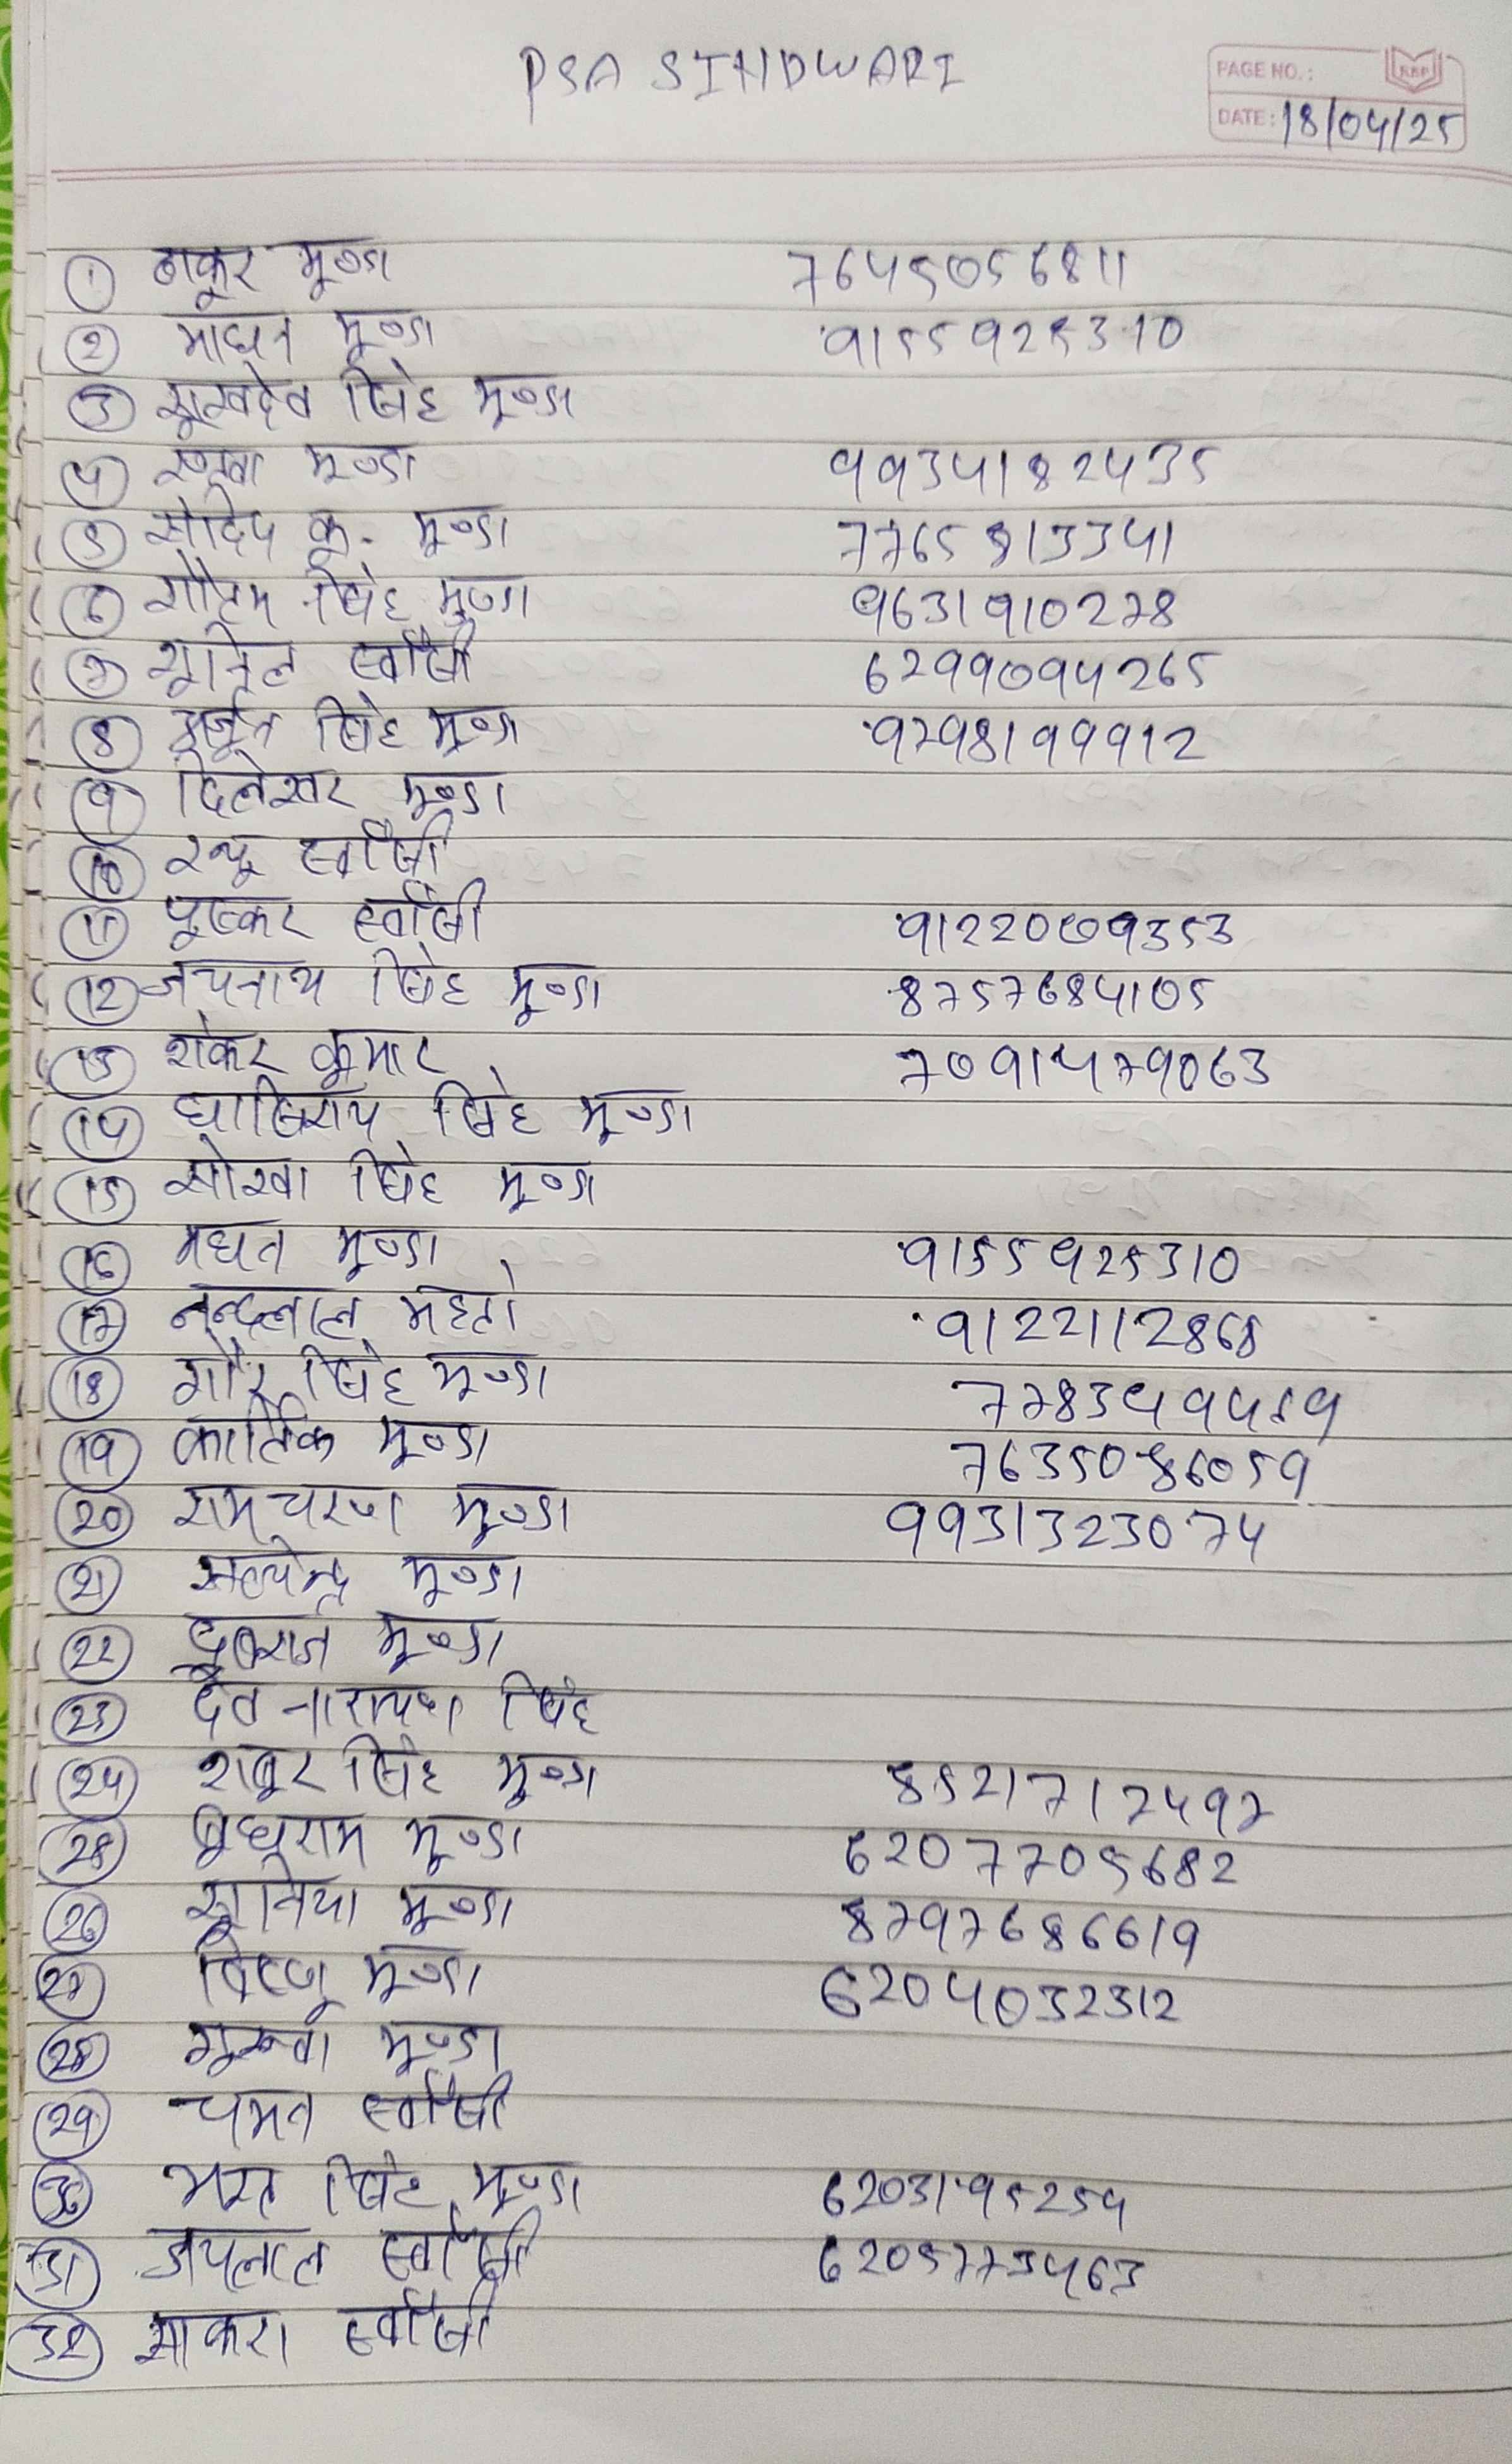 PSA SINDWARI
PAGE NO.:
DATE: 18/04/25
① ठाकुर मुण्डा 7645056811
② माधन मुण्डा 9155925310
③ सुखदेव सिंह मुण्डा
④ मुण्डा 9934182435
⑤ संदिप कु. मुण्डा 7765813341
⑥ गौतम सिंह मुण्डा 9631910278
⑦ सुनिल स्वाँसी 6299094265
⑧ दुर्जन सिंह मुण्डा 9798199912
⑨ दिलेश्वर मुण्डा
⑩ स्वाँसी
⑪ पुष्कर स्वाँसी 9122009353
⑫ जयनाथ सिंह मुण्डा 8757684105
⑬ शंकर कुमार 7091479063
⑭ घासिराय सिंह मुण्डा
⑮ सोखा सिंह मुण्डा
⑯ मघन मुण्डा 9155925310
⑰ नन्दलाल महतो 9122112868
⑱ गौर सिंह मुण्डा
⑲ कार्तिक मुण्डा 7635086059
⑳ रामचरण मुण्डा 9931323074
㉑ सत्येन्द्र मुण्डा
㉒ मुण्डा
㉓ देव नारायण सिंह
㉔ सिंह मुण्डा 8521712497
㉕ बुधुराम मुण्डा 6207705682
㉖ सुनिया मुण्डा 8797686619
㉗ विष्णु मुण्डा 6204032312
㉘ गुरुवा मुण्डा
㉙ चमन स्वाँसी
㉚ भरत सिंह मुण्डा 6203195259
㉛ जयलाल स्वाँसी 6205773463
㉜ साकरा स्वाँसी